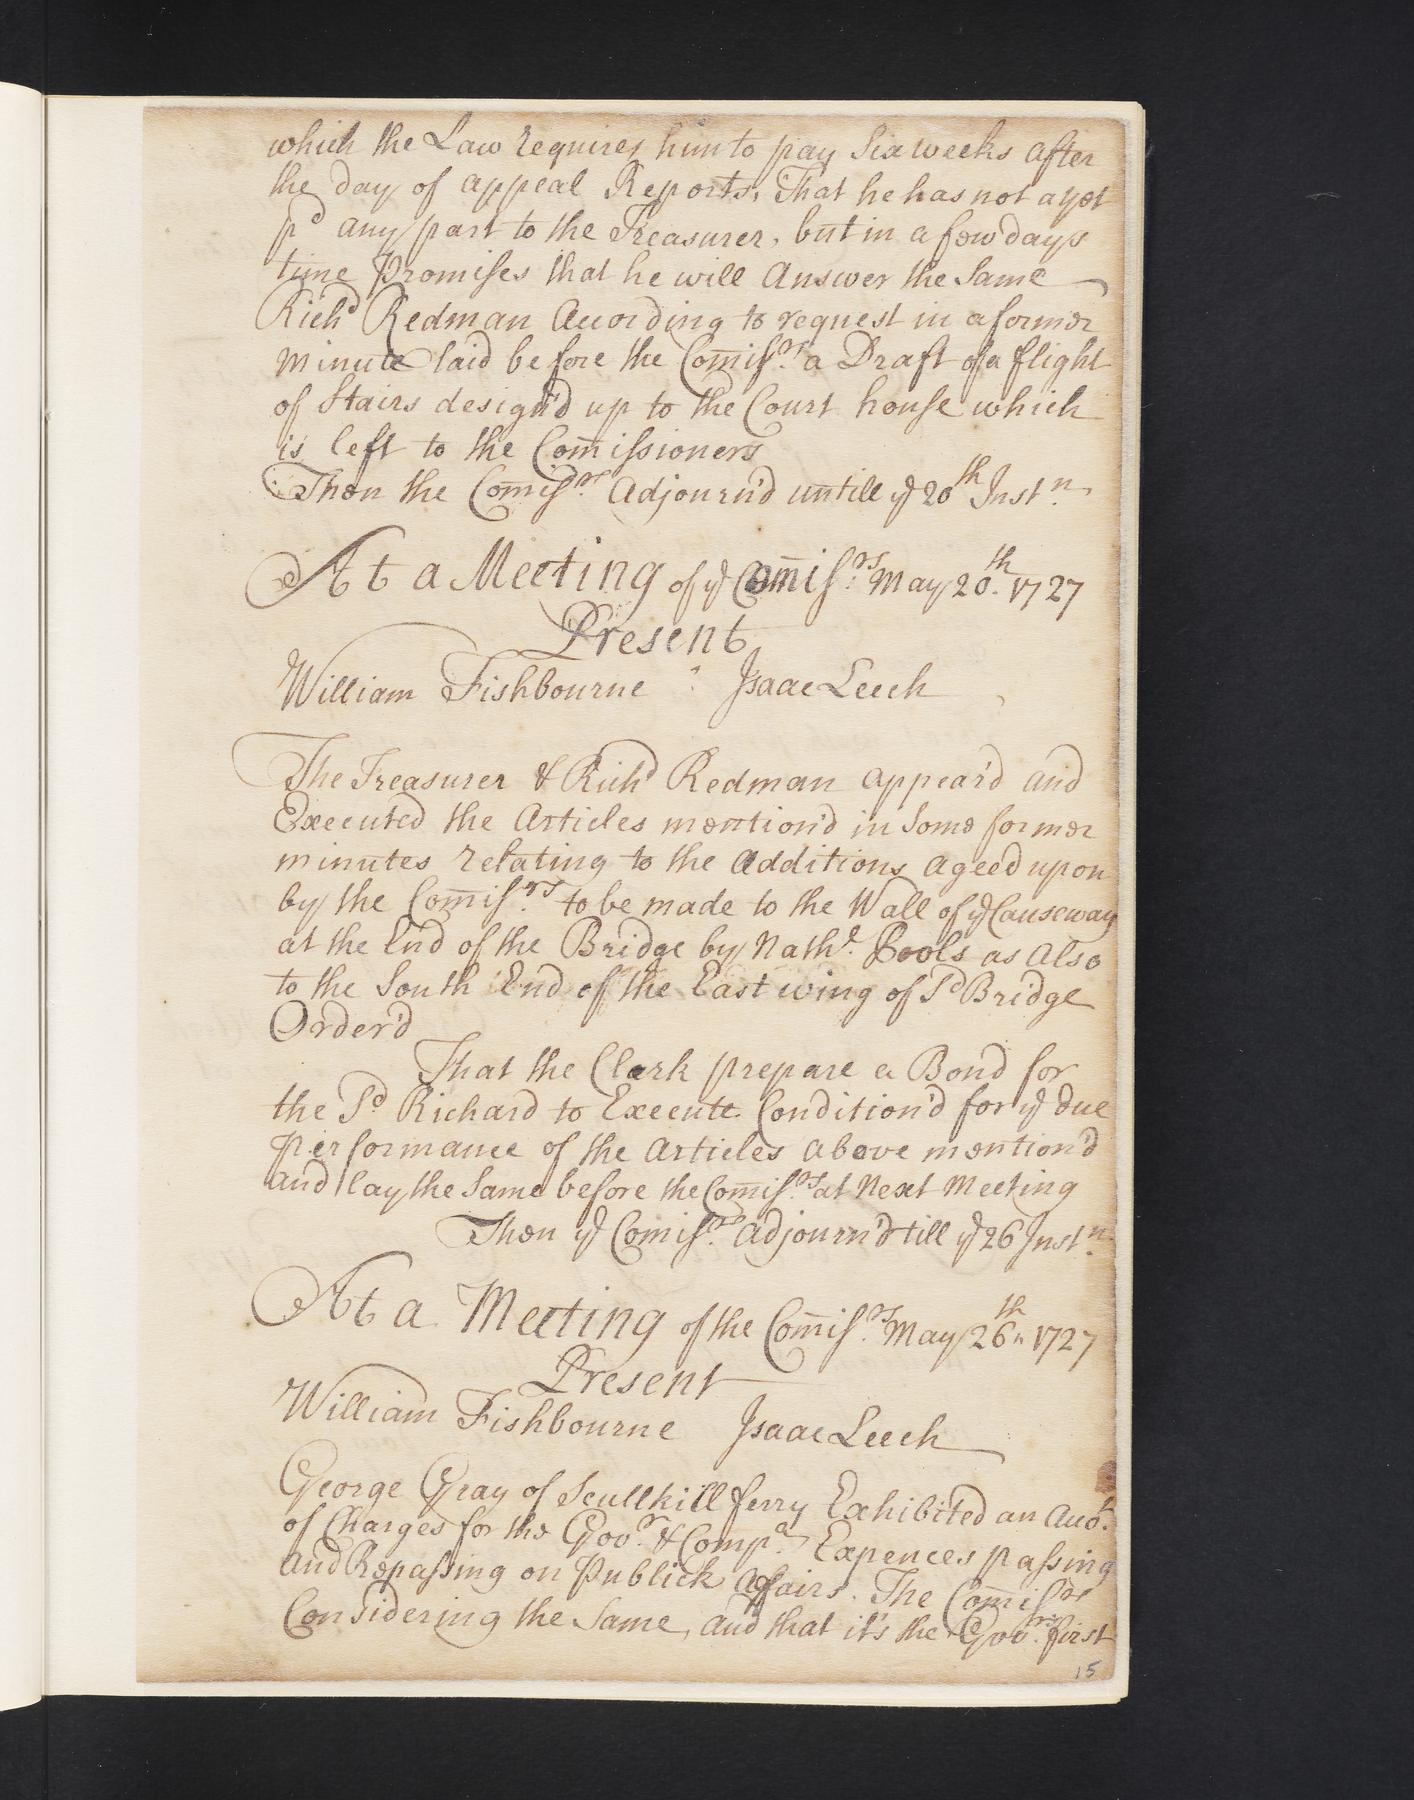 which the Law requires him to pay Six weeks after
the day of appeal Reports, That he has not ayet
pd any part to the Treasurer, but in a few days
time Promises that he will Answer the Same
Richd Redman Acording to request in a former
minute laid before the Comisrs a Draft of a flight
of Stairs design'd up to the Court house which
is left to the Comissioners
Then the Comisrs Adjourn'd untill ye 20th Instn
At a Meeting of ye Comisrs May 20th 1727
Present
William Fishbourne Isaac Leech
The Treasurer & Richd Redman appear'd and
Executed the Articles mention'd in Some former
minutes relating to the Additions ageed upon
by the Comisrs to be made to the Wall of ye Causeway
at the End of the Bridge by Nathl Pools as Also
to the South End of the East wing of Sd Bridge
Order'd
That the Clark prepare a Bond for
the Sd Richard to Execute Condition'd for ye due
performance of the Articles above mention'd
and lay the Same before the Comisrs at Next Meeting
Then ye Comisrs adjourn'd till ye 26 Instn
At a Meeting of the Comisrs May 26th 1727
Present
William Fishbourne Isaac Leech
George Gray of Scullkill ferry Exhibited an Acot
of Charges for the Govr & Compa Expences passing
and Repassing on Publick Affairs. The Comisrs
Considering the Same, and that it's the Govrs first
15